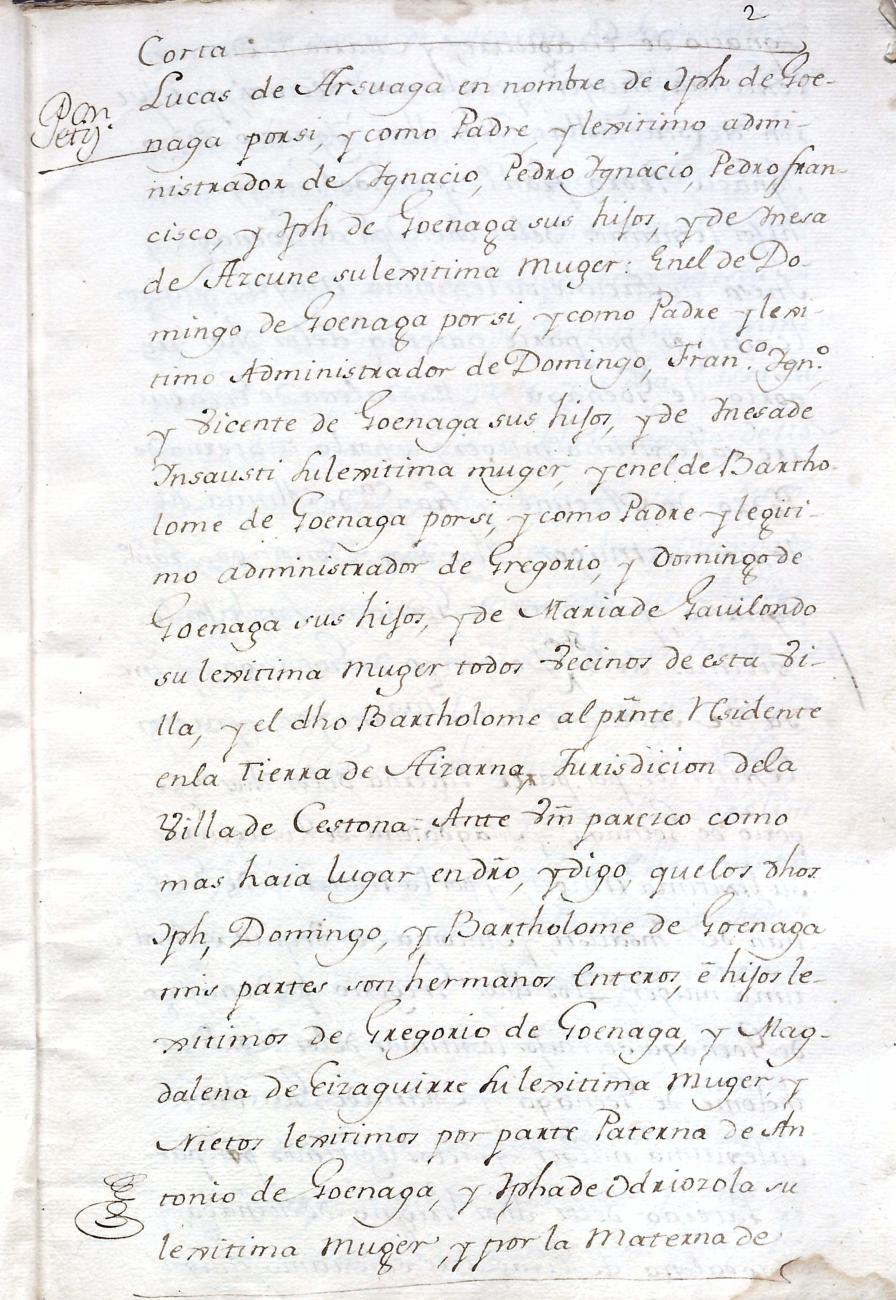 2
Corta
Petiz.on
Lucas de Arsuaga en nombre de Jph de Goe-
naga porsi, y como Padre, y lexitimo admi-
nistrador de Ignacio, Pedro Ignacio, Pedro fran-
cisco, y Jph de Goenaga sus hijos, y de Inesa
de Arcune su lexitima muger: Enel de Do-
mingo de Goenaga por si, y como Padre y lexi-
timo Administrador de Domingo, Fran.co Ign.o
y Vicente de Goenaga sus hijos, y de Inesa de
Insausti su lexitima muger, y enel de Bartho-
lome de Goenaga por si, y como Padre y legiti-
mo administrador de Gregorio, y Domingo de
Goenaga sus hijos, y de Maria de Gavilondo
su lexitima muger todos Vecinos de esta Vi-
lla, y el dho Bartholome al prñte Residente
enla Tierra de Aizarna, Jurisdicion dela
Villa de Cestona: Ante Vm̃ parezco como
mas haia lugar en dr̃o, y digo, quelos dhos
Jph, Domingo, y Bartholome de Goenaga
mis partes son hermanos Enteros, ẽ hijos le-
xitimos de Gregorio de Goenaga, y Mag-
dalena de Eizaguirre su lexitima muger, y
Nietos lexitimos por parte Paterna de An
tonio de Goenaga, y Jpha de Odriozola su
lexitima muger, y por la Materna de